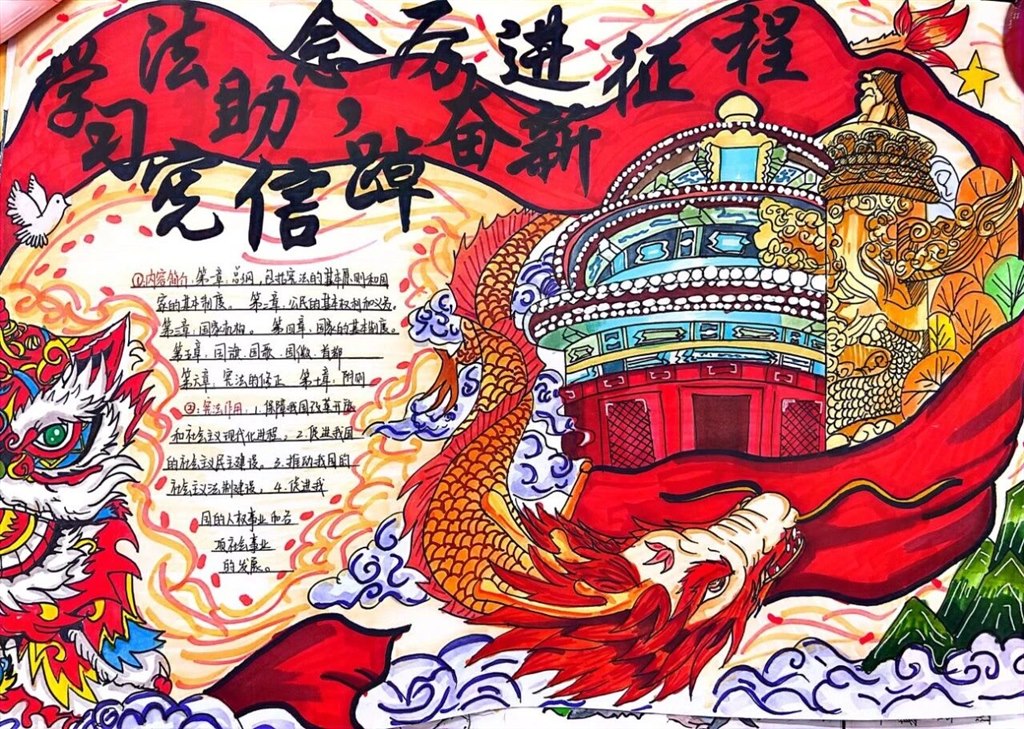 学习宪法助信念，踔厉奋进新征程
①内容简介 第一章，总纲，包括宪法的基本原则和国
家的基本制度。 第二章，公民的基本权利和义务。
第三章，国家机构。 第四章，国家的基本制度。
第五章，国旗、国歌、国徽、首都
第六章，宪法的修正 第十章，附则
②：宪法作用：1.保障我国改革开放
和社会主义现代化进程。2.促进我国
的社会主义民主建设。3.推动我国的
社会主义法制建设。4.促进我
国的人权事业和各
项社会事业
的发展。